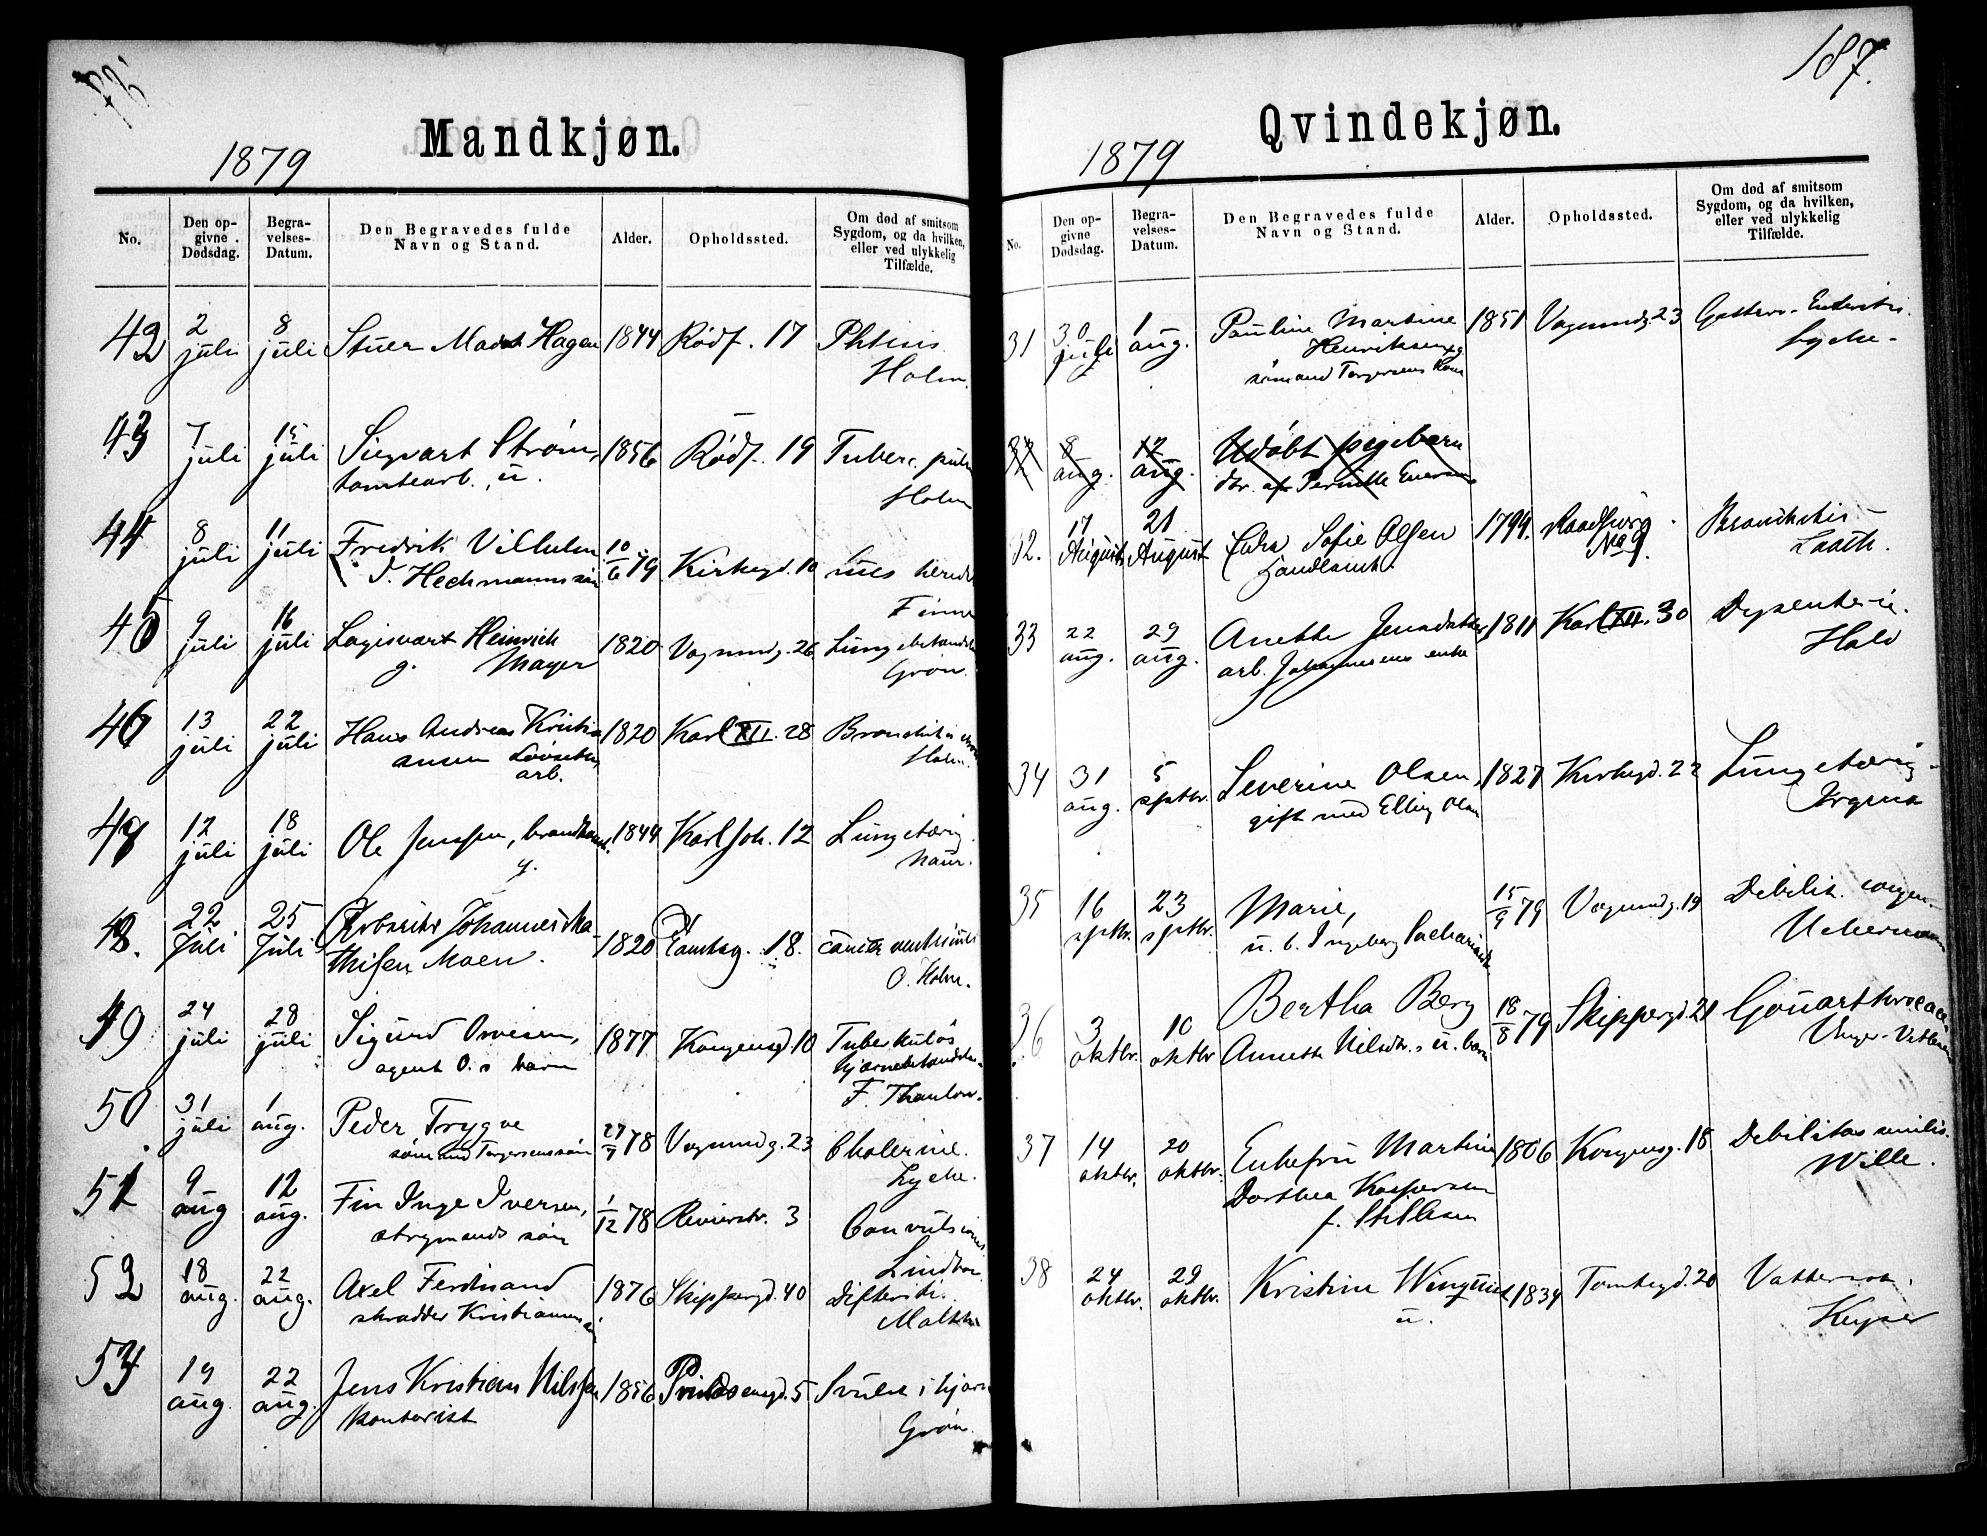 Mandkjøn.
1879
No.
Den op-
givne
Dødsdag.
Begra-
velses-
Datum.
Den Begravedes fulde
Navn og Stand.
Alder.
Opholdssted.
Om død af smitsom
Sygdom, og da hvilken,
eller ved ulykkelig
Tilfælde.
42 2 juli 8 juli Stuer Hagen 1844 Rødf. 17
Holm.
43 7 juli 15 juli Sigvart Strøm, 1856 Rødf. 19 Tuberc. pulm
tomtearb., u. Holm
44 8 juli 11 juli Fredrik Vilhelm 10/6 79 Kirkegd. 10
Hechmanns søn
45 9 juli 16 juli Heinrich 1820 Vognmdg. 26 Lungebetændelse
g. Mayer Grøn.
46 13 juli 22 juli Hans Andreas Kristi- 1820 Karl XII. 28 Bronchitis
ansen
arb. Holm.
47 12 juli 18 juli Ole Jenssen, 1844 Karl Joh. 12 Lungetæring
g.
48. 22 Juli 25 Juli Arbeider Johannes Ma- 1820 Tomteg. 18. cancer ventriculi
thisen Moen. O. Holm.
49 24 juli 28 juli Sigurd 1877 Kongensgd 10 Tuberkuløs
agent O.s barn hjernebetændelse
F. Thaulow.
50 31 juli 1 aug. Peder Trygve 27/7 78 Vognmndg. 23 Cholerine.
sømand Torgersens søn Lyche.
51 9 aug 12 aug. Fin Inge Iversen, 1/12 78 Revierstr. 3 Convulsiones.
styrmands søn
52 18 aug. 22 aug. Axel Ferdinand 1876 Skippergd. 40 Difteritis.
skrædder Kristiansens
53 19 aug. 22 aug. Jens Kristian Nilssen 1856 Prindsensgd. 5 Svulst i hjern
kontorist Grøn.
187.
Qvindekjøn.
1879
No.
Den op-
givne
Dødsdag.
Begra-
velses-
Datum.
Den Begravedes fulde
Navn og Stand.
Alder.
Opholdssted.
Om død af smitsom
Sygdom, og da hvilken,
eller ved ulykkelig
Tilfælde.
31 30 juli 1 aug. Pauline Martine 1851 Vognmndg. 23
Henriksen, g. Lyche.
sømand Torgersens Kone
8 aug. 12 aug. Udøbt pigebarn
dtr. af Pernille
32. 17 August 21 August Sofie Olsen 1799.
No 9.
33 22 aug. 29 aug. Anette 1811 Karl XII. 30 Dysenteri.
arb. Johannesens enke Hald
34 31 aug. 5 septbr. Severine Olsen, 1827 Kirkegd. 22 Lungetæring
gift med Elling Olsen
35 16 septbr. 23 septbr. Marie, 15/9 79 Vognmndg. 19 Debilit. congen.
u. b. Ingeborg Uchermann
36 3 oktbr. 10 oktbr Bertha Berg 18/8 79 Skippergd. 21
Annette Nilsdtr.s u. barn
37 14 oktbr. 20 oktbr. Enkefru Martine 1806 Kongensg. 18 Debilitas senilis.
Dorthea Kaspersen Wille.
38 24 oktbr. 29 oktbr. Kristine 1834 Tomtegd. 20 Vattersot.
u. Keyser